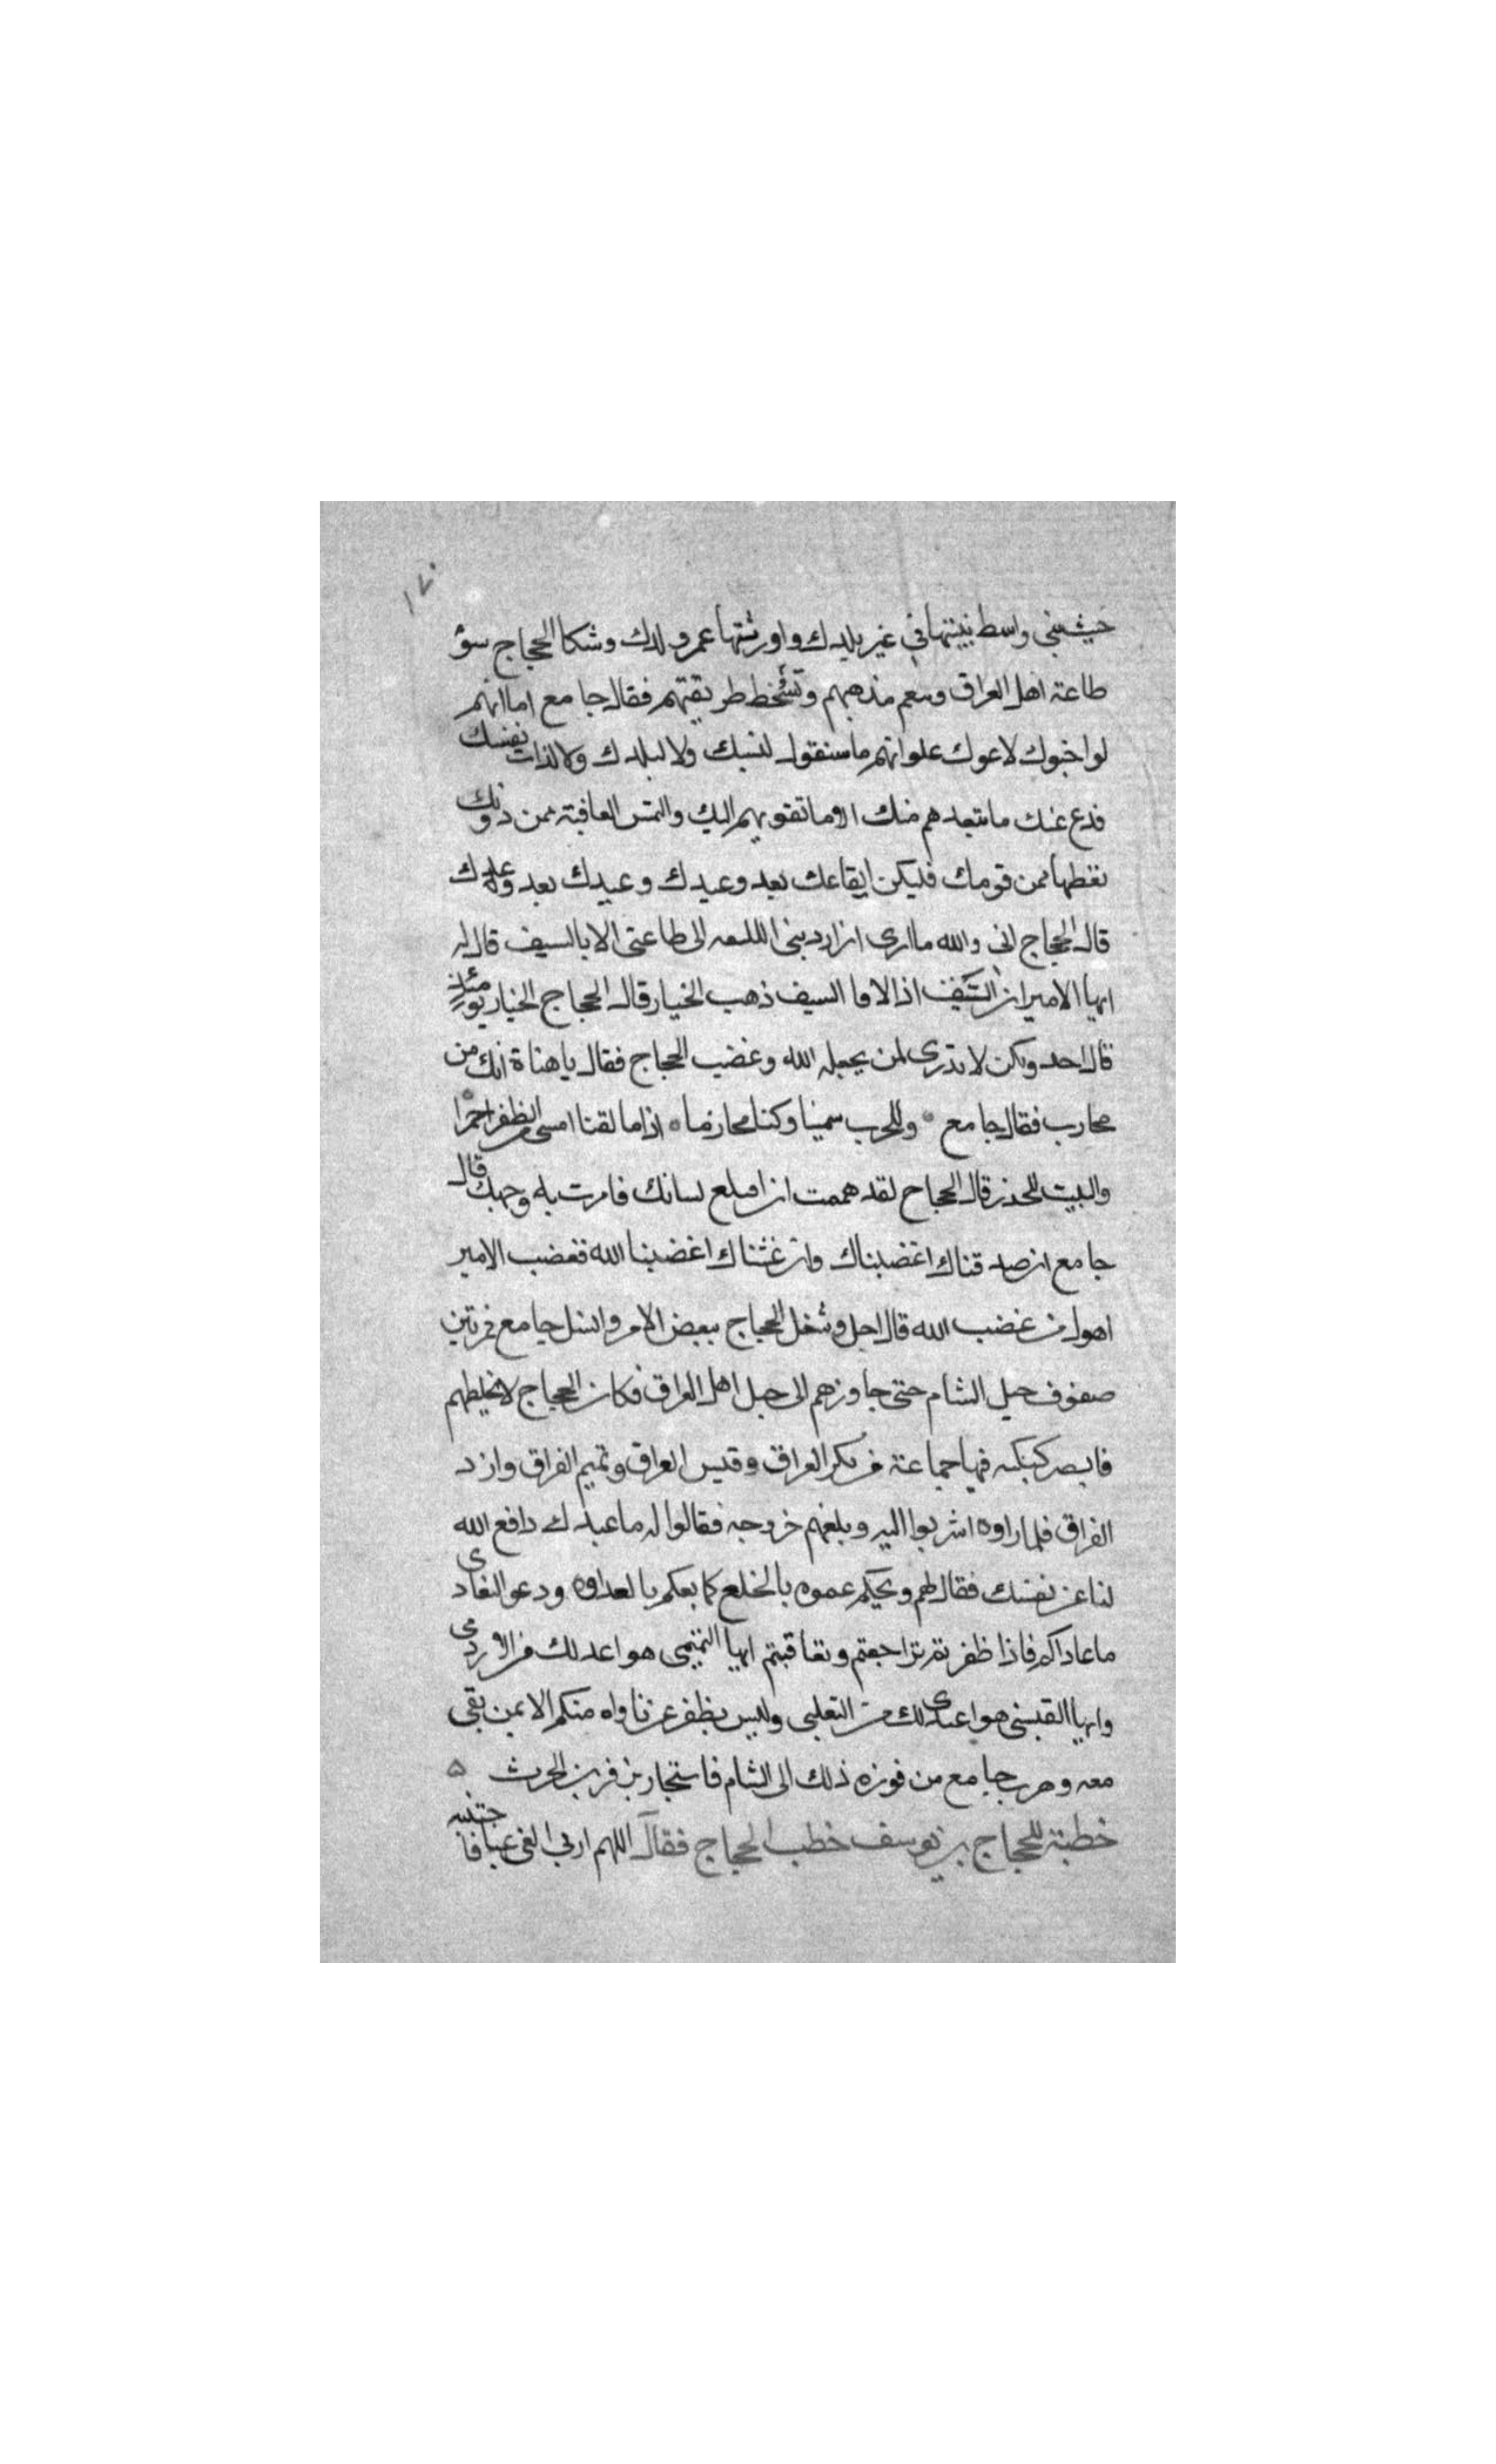 ١٧٠
حيث بنى واسط بنيتها في غير بلدك واورثتها غير ولدك وشكا الحجاج سؤ
طاعة اهل العراق وسقم مذهبهم وتسخط طريقتهم فقال جامع اما انهم
لو احبوك لاطاعوك على انهم ما سنفوك لنسبك ولا لبلدك ولا لذات نفسك
فدع عنك ما يبعدهم منك الى ما تقربهم اليك والتمس العافية ممن دونك
تعطها ممن فوقك فليكن ايقاعك بعد وعيدك وعيدك بعد وعدك
قال الحجاج اني والله ما ارى ان ارد بني اللكيعه الى طاعتي الا بالسيف قال له
ايها الامير ان السيف اذا لاقا السيف ذهب الخيار قال الحجاج الخيار يومئذ لله
قال اجد ولكن لا تدري لمن يجعله الله وغضب الحجاج فقال يا هناة انك من
محارب فقال جامع وللحرب سمينا وكنا محاربا اذا ما القنا امسى من الظفر احمرا
والبيت للخضرى قال الحجاج لقد هممت ان اخلع لسانك فاضرب به وجهك قال
جامع ان صدقناك اغضبناك وان غششناك اغضبنا الله فغضب الامير
اهون من غضب الله قال اجل وشغل الحجاج ببعض الامر وانسل جامع فمر بين
صفوف خيل الشام حتى جاوزهم الى خيل اهل العراق فكان الحجاج لا يخلطهم
فابصر كبكبه فيها جماعة من بكر العراق وقيس العراق وتميم العراق وازد
العراق فلما راوه اشربوا اليه وبلغهم خروجه فقالوا له ما عندك دافع الله
لنا عن نفسك فقال لهم ويحكم عموه بالخلع كما يعمكم بالعداوه ودعوا التعادى
ما عاداكم فاذا ظفرتم تراجعتم وتعاقبتم ايها التميمي هو اعدى لك من الازدى
وايها القيسي هو اعدى لك من التغلبي وليس يظفر بمن ناواه منكم الا بمن بقى
معه وهرب جامع من فوره ذلك الى الشام فاستجار بزفر بن الحرث ه
خطبة للحجاج بن يوسف خطب الحجاج فقال اللهم ارني الغي غيا فاجتنبه